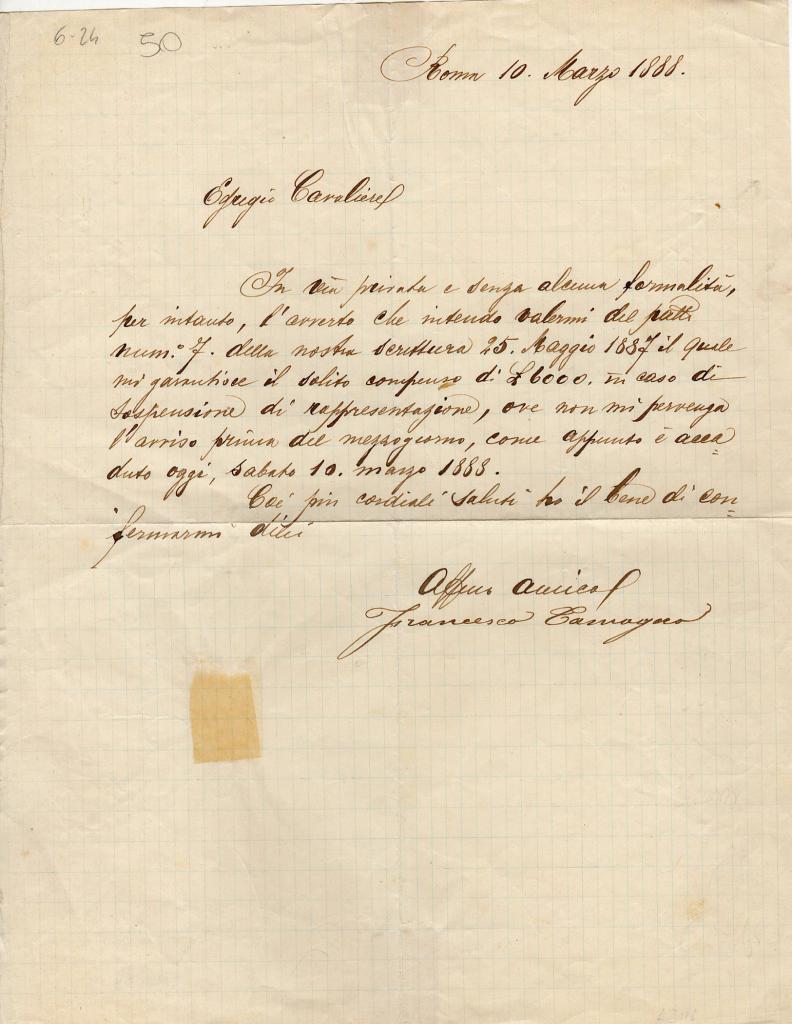 6-24 50
Roma 10. Marzo 1888.
Egregio Cavaliere
In via privata e senza alcuna formalità,
per intanto, l'avverto che intendo valermi del patto
num.º 7. della nostra scrittura 25. Maggio 1887 il quale
mi garantisce il solito compenso di £6000. in caso di
sospensione di rappresentazione, ove non mi pervenga
l'avviso prima del mezzogiorno, come appunto è acca=
duto oggi, sabato 10. marzo 1888.
Coi più cordiali saluti ho il bene di con=
fermarmi di lei
Affmo amico
Francesco Tamagno